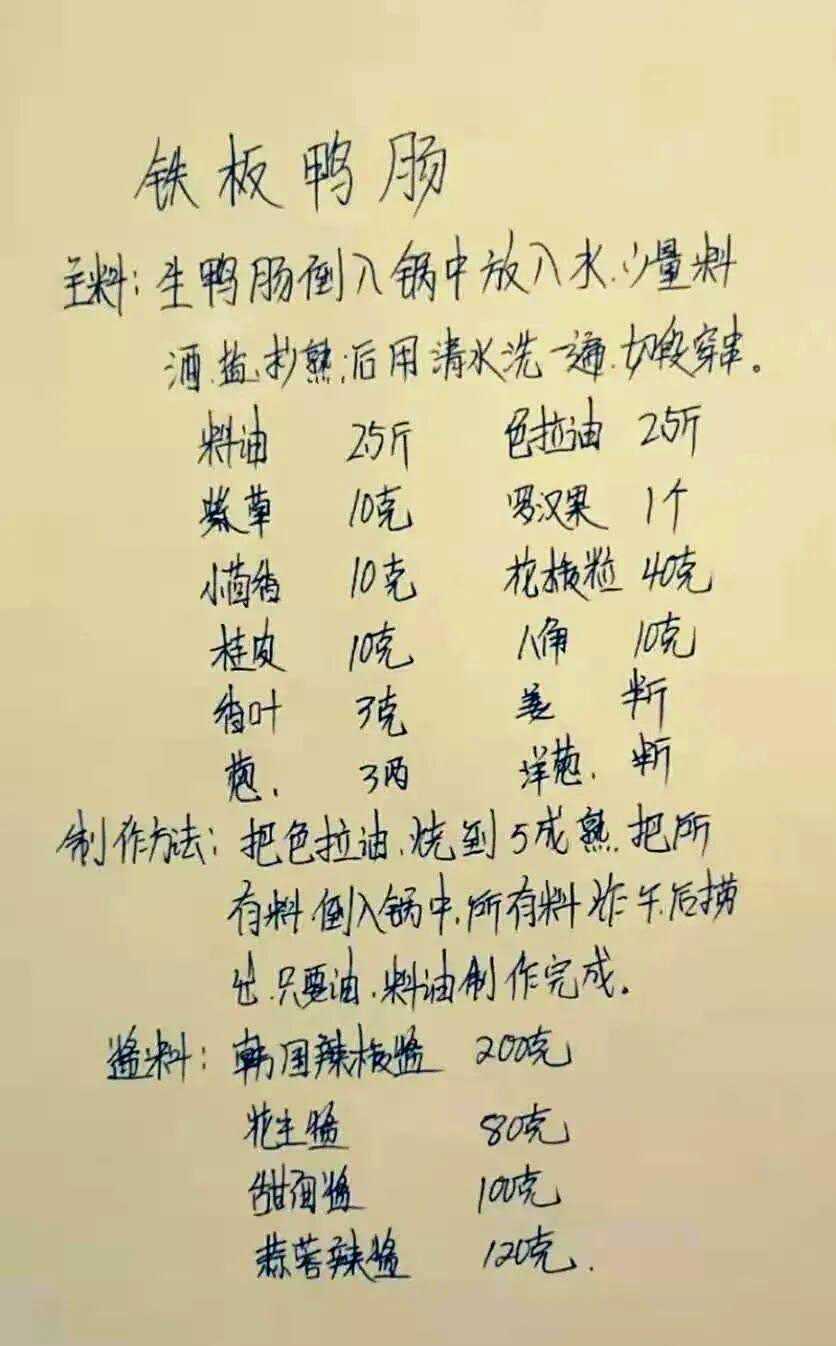 铁板鸭肠
主料:生鸭肠倒入锅中放入水、少量料
酒、盐、抄熟,后用清水洗一遍、切段穿串。
料油 25斤 色拉油 25斤
紫草 10克 罗汉果 1个
小茴香 10克 花椒粒 40克
桂皮 10克 八角 10克
香叶 3克 姜 半斤
葱、 3两 洋葱、 半斤
制作方法:把色拉油、烧到5成熟、把所
有料倒入锅中、所有料炸干后捞
出、只要油、料油制作完成。
酱料:韩国辣椒酱 200克
花生酱 80克
甜面酱 100克
蒜蓉辣酱 120克.